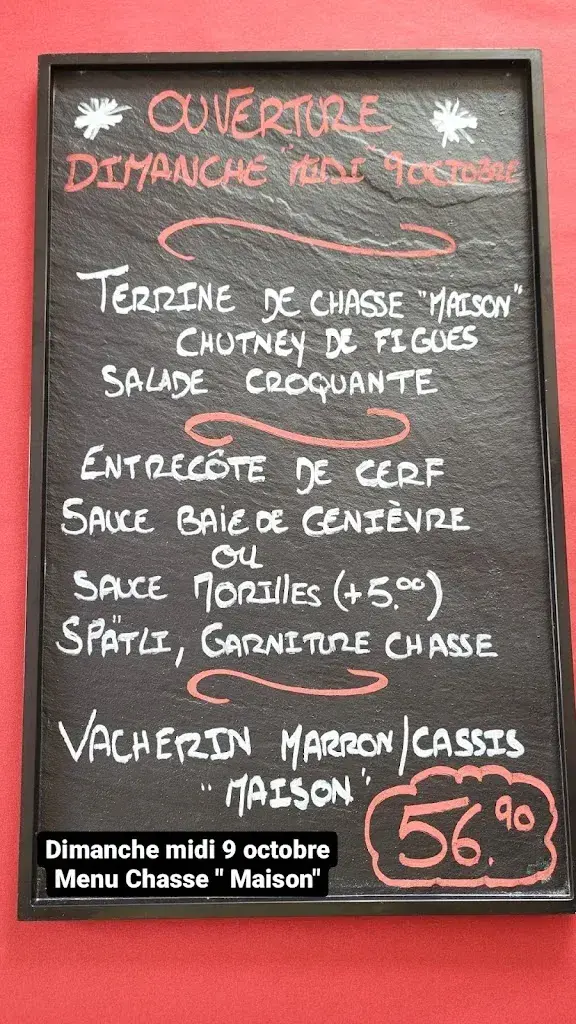 OUVERTURE
DIMANCHE "MIDI" 9 OCTOBRE
TERRINE DE CHASSE "MAISON"
CHUTNEY DE FIGUES
SALADE CROQUANTE
ENTRECÔTE DE CERF
SAUCE BAIE DE GENIÈVRE
OU
SAUCE MORILLES (+5.00)
SPÄTLI, GARNITURE CHASSE
VACHERIN MARRON/CASSIS
"MAISON"
56.90
Dimanche midi 9 octobre
Menu Chasse " Maison"